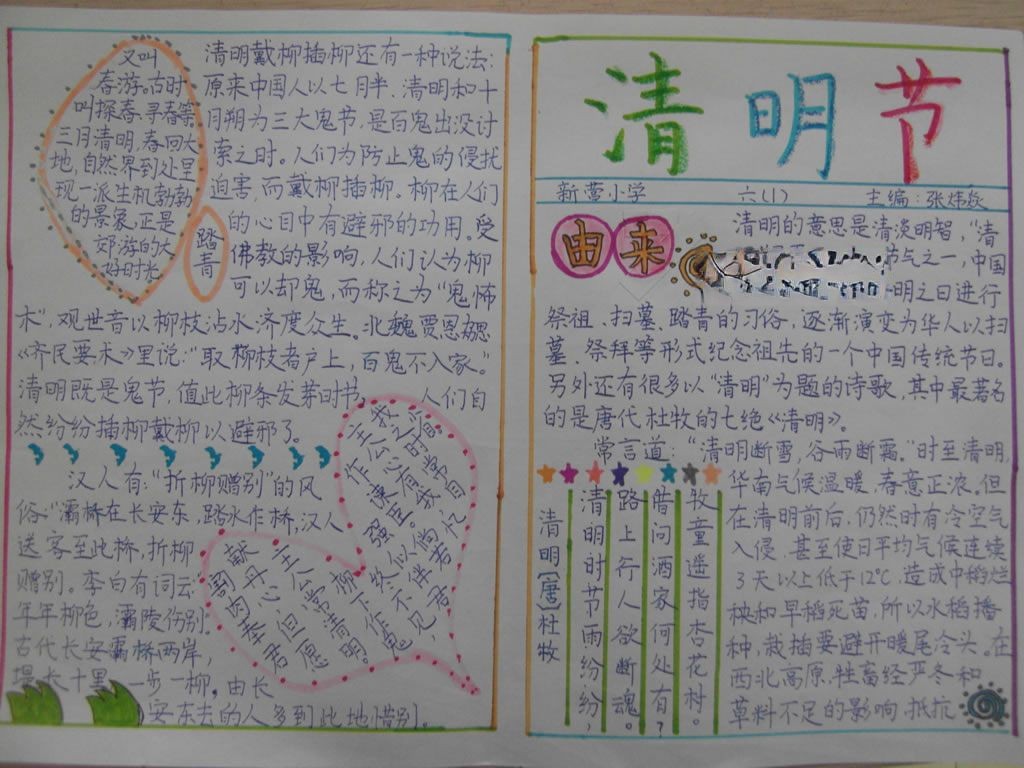 又叫
春游。古时
叫探春、寻春等
三月清明,春回大
地,自然界到处呈
现一派生机勃勃
的景象,正是
郊游的大
好时光
踏
青
清明戴柳插柳还有一种说法:
原来中国人以七月半、清明和十
月朔为三大鬼节,是百鬼出没讨
索之时。人们为防止鬼的侵扰
迫害,而戴柳插柳。柳在人们
的心目中有避邪的功用。受
佛教的影响,人们认为柳
可以却鬼,而称之为“鬼怖
木”,观世音以柳枝沾水济度众生。北魏贾思勰
《齐民要术》里说:“取柳枝著户上,百鬼不入家。”
清明既是鬼节,值此柳条发芽时节,人们自
然纷纷插柳戴柳以避邪了。
汉人有:“折柳赠别”的风
俗:“灞桥在长安东,跨水作桥,汉人
送客至此桥,折柳
赠别。李白有词云:
年年柳色,灞陵伤别。
古代长安灞桥两岸,
堤长十里,一步一柳,由长
安东去的人多到此地惜别。
割肉奉君
献丹心,但愿
主公常清明。
柳下作鬼
终不见,
强似伴君
作谏臣。倘若
主公心有我,忆
我之时常自省
清明节
新营小学 六(1) 主编:张炜
由来
清明的意思是清淡明智,“清
节气之一,中国
明之日进行
祭祖、扫墓、踏青的习俗,逐渐演变为华人以扫
墓、祭拜等形式纪念祖先的一个中国传统节日。
另外还有很多以“清明”为题的诗歌,其中最著名
的是唐代杜牧的七绝《清明》。
常言道:“清明断雪,谷雨断霜。”时至清明,
华南气候温暖,春意正浓。但
在清明前后,仍然时有冷空气
入侵,甚至使日平均气候连续
3天以上低于12℃,造成中稻烂
秧和早稻死苗,所以水稻播
种、栽插要避开暖尾冷头。在
西北高原,牲畜经严冬和
草料不足的影响,抵抗
清明[唐]杜牧
清明时节雨纷纷,
路上行人欲断魂。
借问酒家何处有?
牧童遥指杏花村。